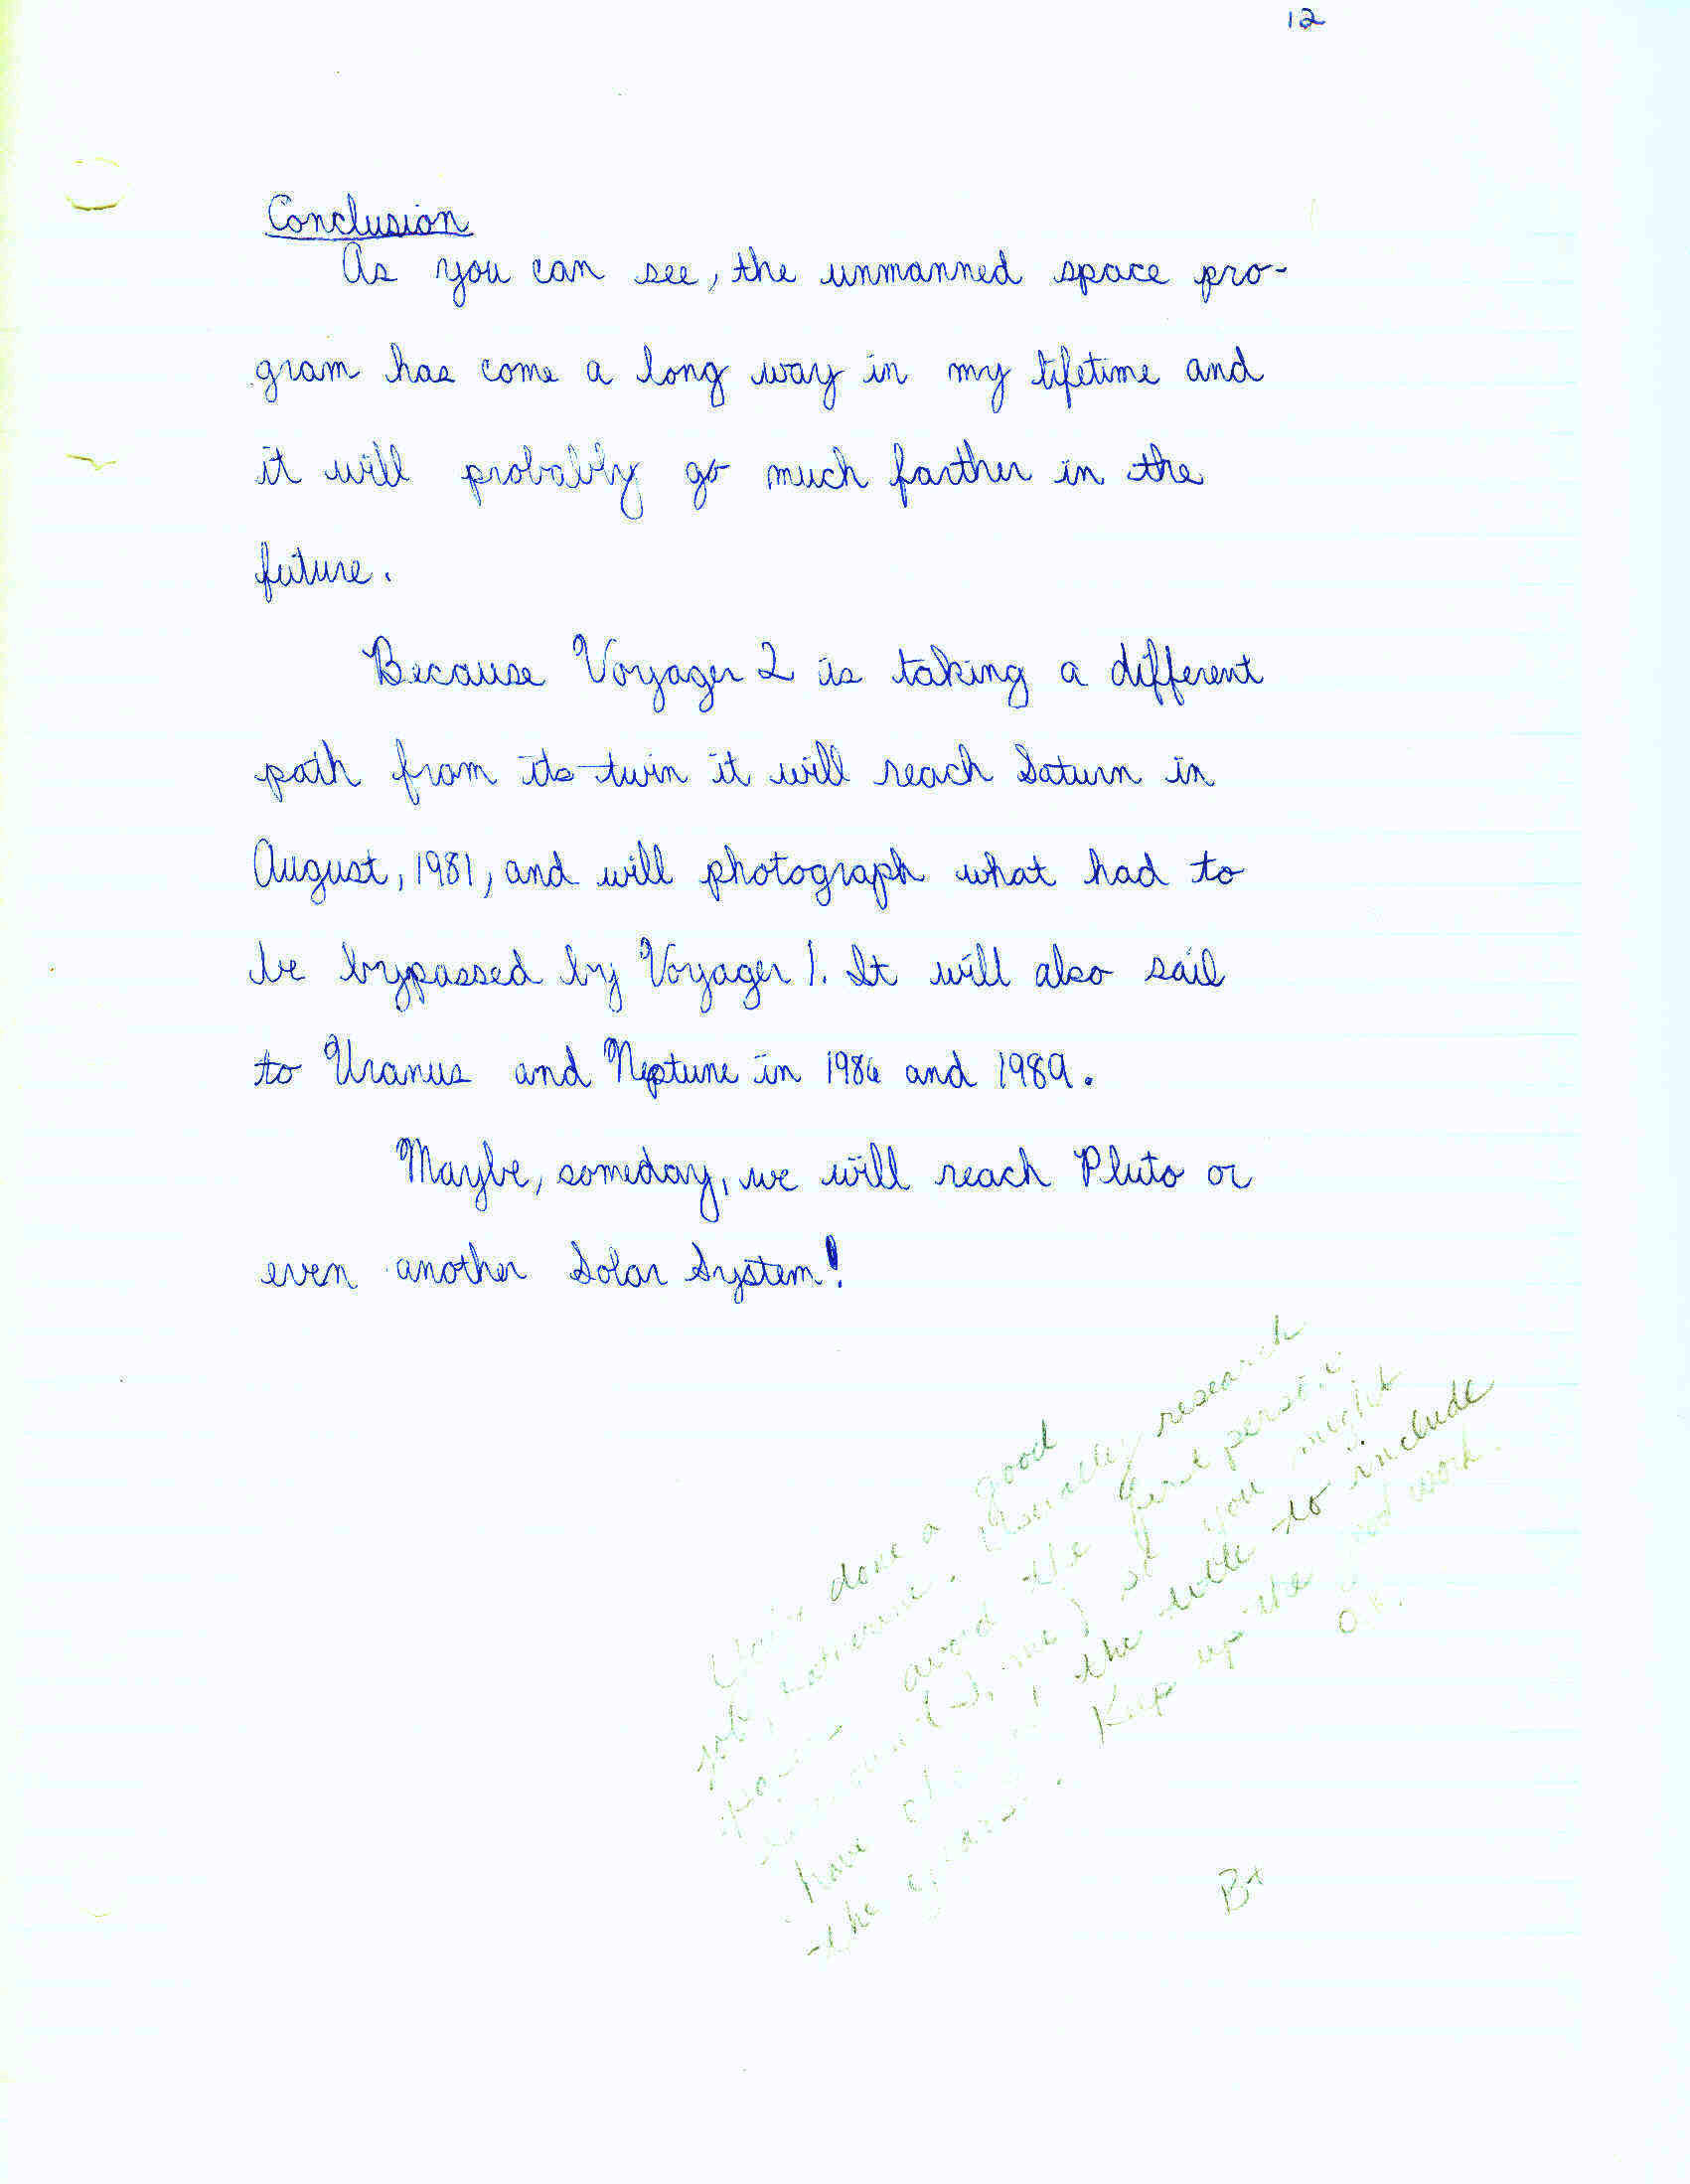 12
Conclusion
As you can see, the unmanned space pro-
gram has come a long way in my lifetime and
it will probably go much farther in the
future.
Because Voyager 2 is taking a different
path from its twin it will reach Saturn in
August, 1981, and will photograph what had to
be bypassed by Voyager 1. It will also sail
to Uranus and Neptune in 1986 and 1989.
Maybe, someday, we will reach Pluto or
even another Solar System!
done a good
job, research
avoid the first person
(I, me) so you might
have the title to include
the Keep up the good work.
B+